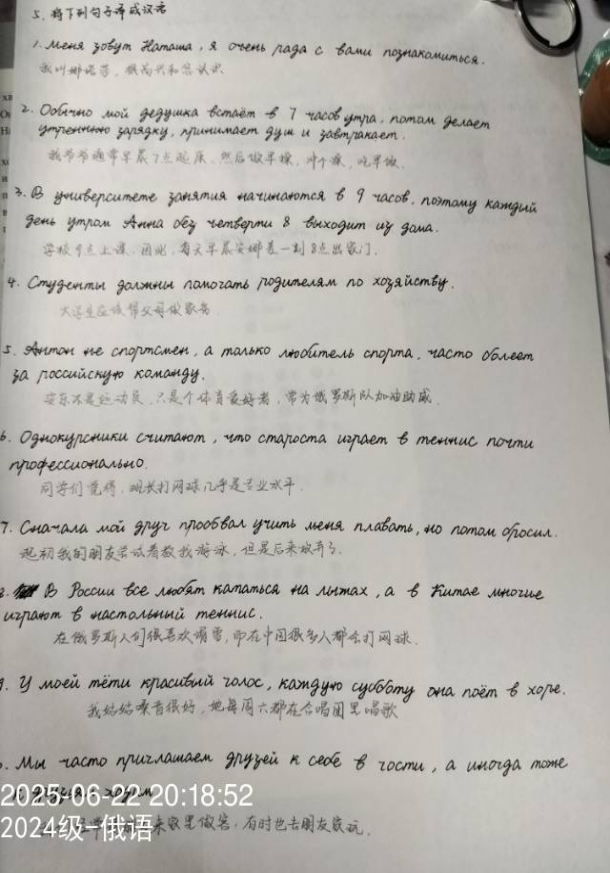 5. 将下列句子译成汉语
1. Меня зовут Наташа, я очень рада с вами познакомиться.
我叫娜塔莎,很高兴和您认识
2. Обычно мой дедушка встаёт в 7 часов утра, потом делает
утреннюю зарядку, принимает душ и завтракает.
我爷爷通常早晨7点起床,然后做早操,冲个澡,吃早饭.
3. В университете занятия начинаются в 9 часов, поэтому каждый
день утром Анна без четверти 8 выходит из дома.
学校9点上课,因此,每天早晨安娜差一刻8点出家门.
4. Студенты должны помогать родителям по хозяйству.
大学生应该帮父母做家务
5. Антон не спортсмен, а только любитель спорта, часто болеет
за российскую команду.
安东不是运动员,只是个体育爱好者,常为俄罗斯队加油助威.
6. Однокурсники считают, что староста играет в теннис почти
профессионально.
同学们觉得,班长打网球几乎是专业水平.
7. Сначала мой друг пробовал учить меня плавать, но потом бросил.
起初我的朋友尝试着教我游泳,但是后来放弃了.
В России все любят кататься на лыжах, а в Китае многие
играют в настольный теннис.
在俄罗斯人们很喜欢滑雪,而在中国很多人都会打网球.
9. У моей тёти красивый голос, каждую субботу она поёт в хоре.
我姑姑嗓音很好,她每周六都在合唱团里唱歌
Мы часто приглашаем друзей к себе в гости, а иногда тоже
ходим
2025-06-22 20:18:52
2024级-俄语
来家里做客,有时也去朋友家玩.